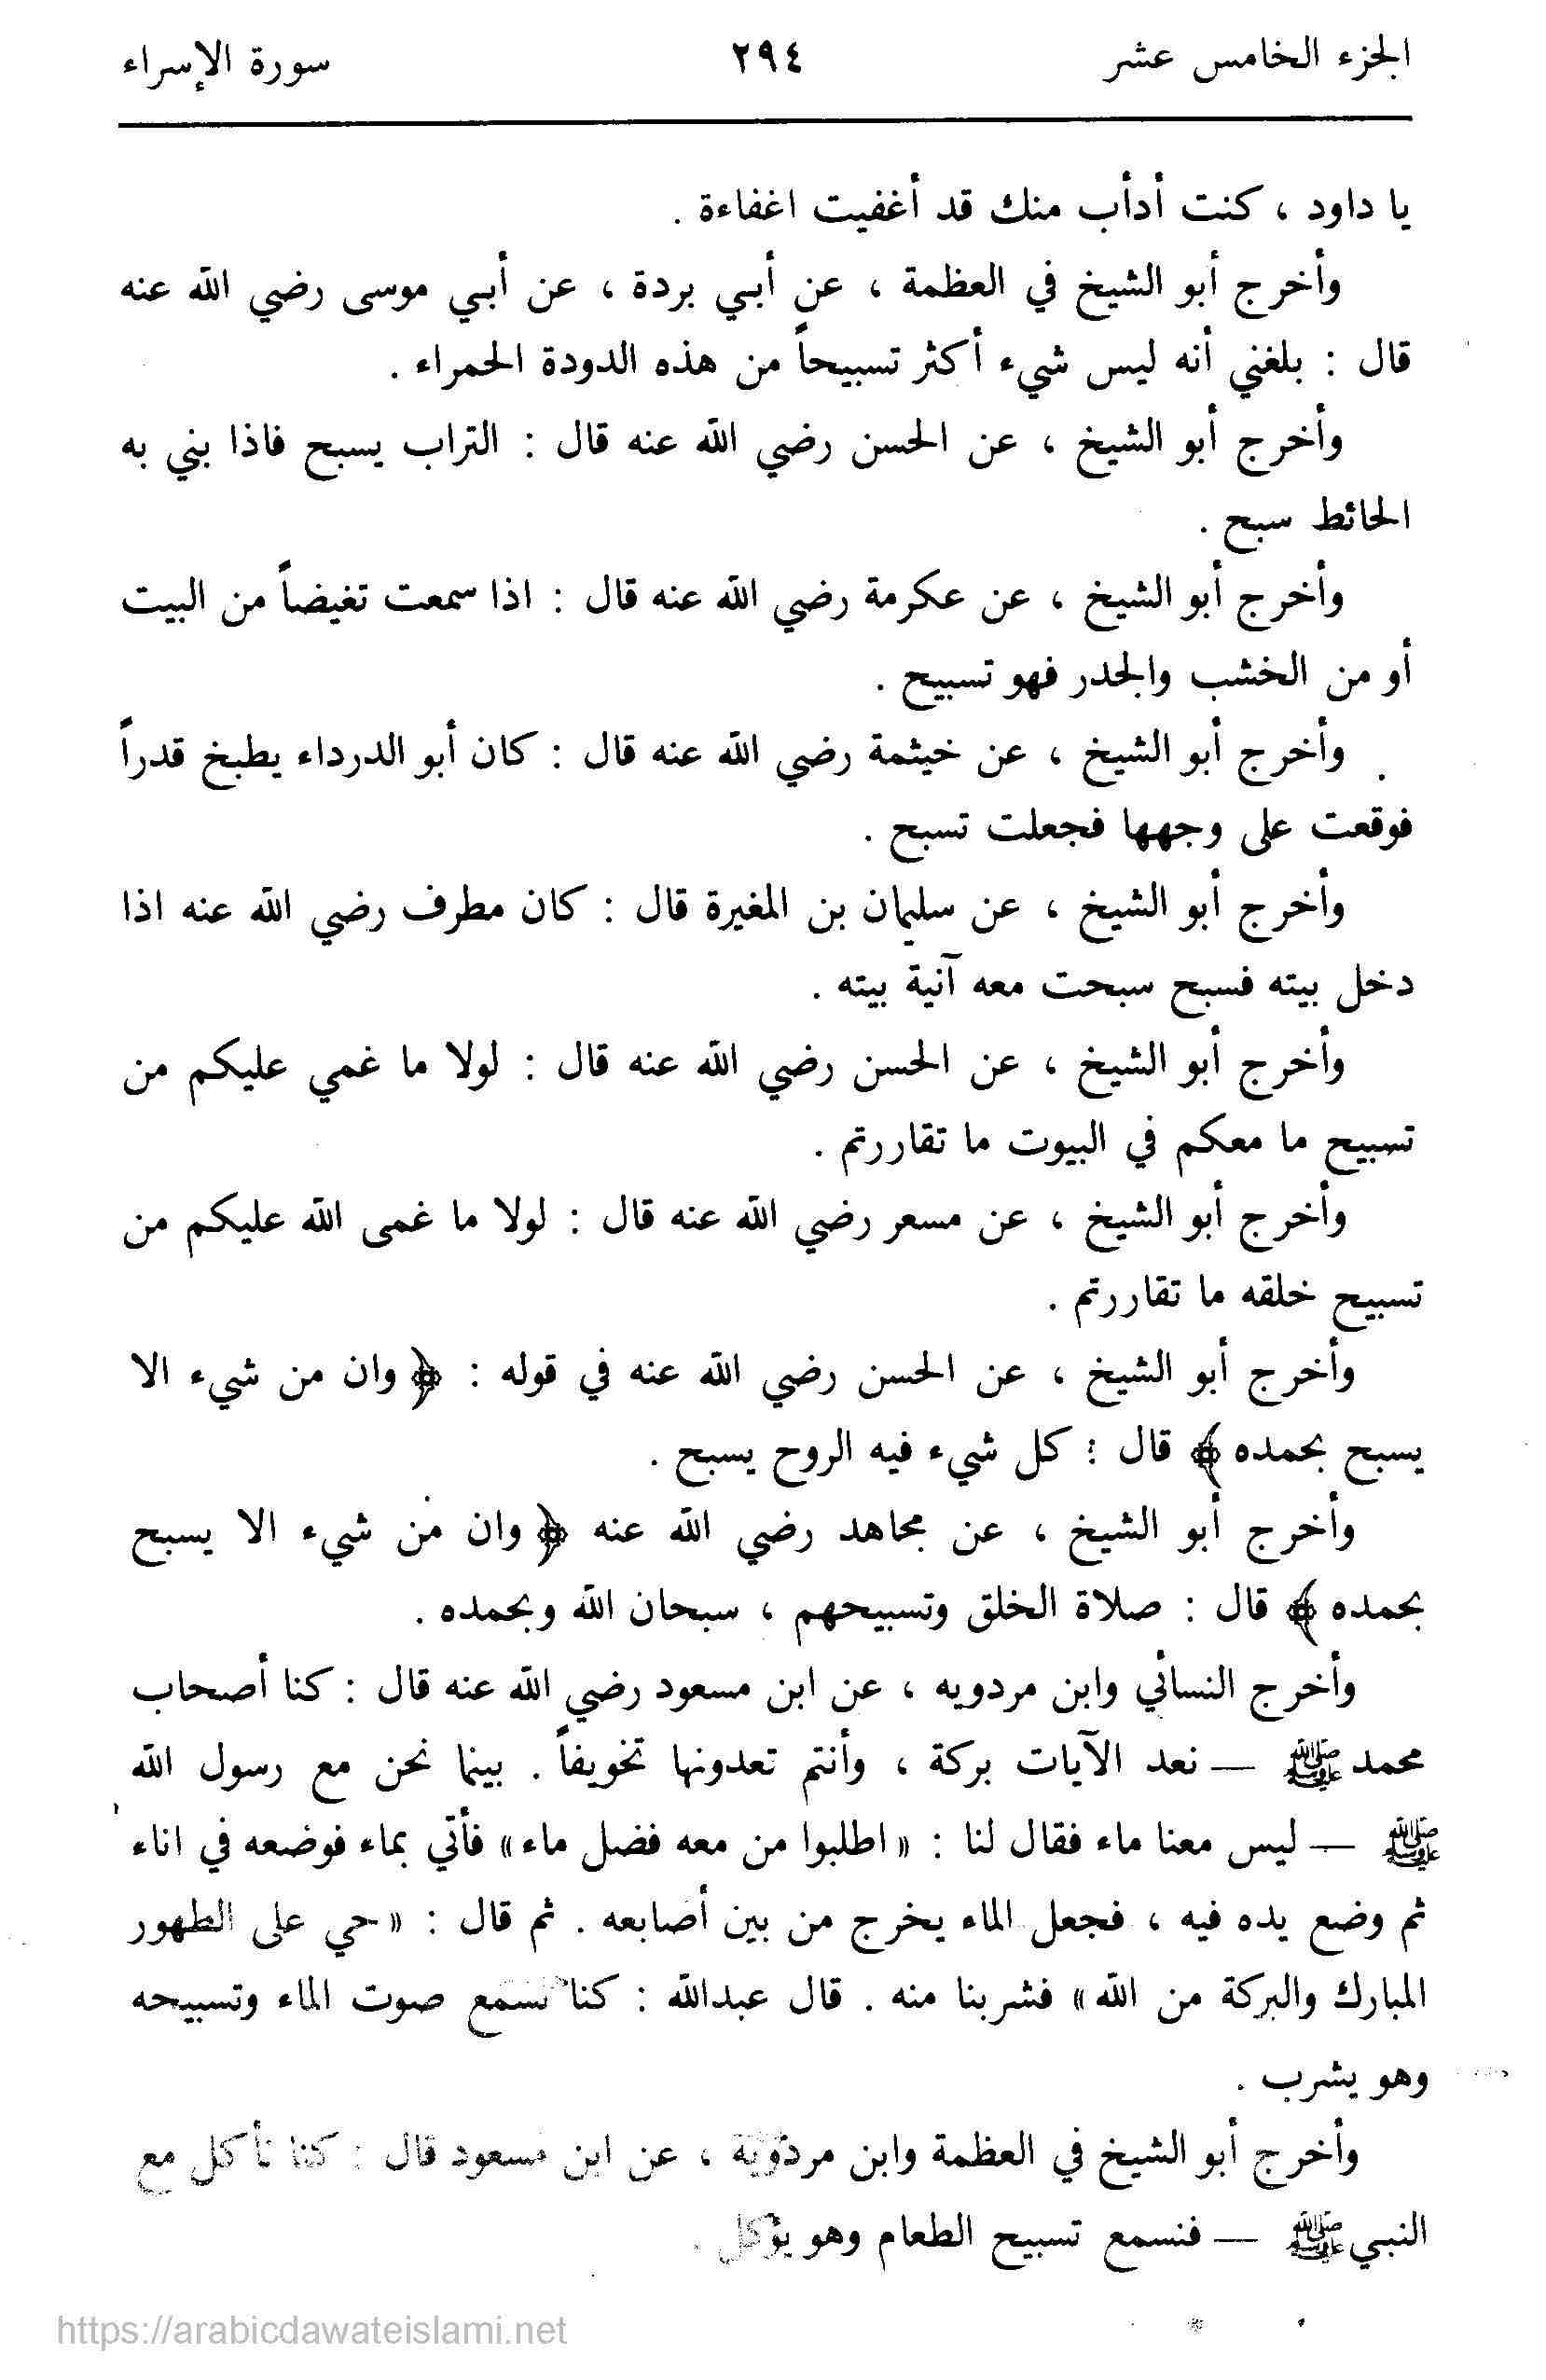 الجزء الخامس عشر ٢٩٤ سورة الإسراء
يا داود ، كنت أدأب منك قد أغفيت اغفاءة .
وأخرج أبو الشيخ في العظمة ، عن أبي بردة ، عن أبي موسى رضي الله عنه
قال : بلغني أنه ليس شيء أكثر تسبيحاً من هذه الدودة الحمراء .
وأخرج أبو الشيخ ، عن الحسن رضي الله عنه قال : التراب يسبح فاذا بني به
الحائط سبح .
وأخرج أبو الشيخ ، عن عكرمة رضي الله عنه قال : اذا سمعت تغيضاً من البيت
أو من الخشب والجدر فهو تسبيح .
وأخرج أبو الشيخ ، عن خيثمة رضي الله عنه قال : كان أبو الدرداء يطبخ قدراً
فوقعت على وجهها فجعلت تسبح .
وأخرج أبو الشيخ ، عن سليمان بن المغيرة قال : كان مطرف رضي الله عنه اذا
دخل بيته فسبح سبحت معه آنية بيته .
وأخرج أبو الشيخ ، عن الحسن رضي الله عنه قال : لولا ما غمي عليكم من
تسبيح ما معكم في البيوت ما تقاررتم .
وأخرج أبو الشيخ ، عن مسعر رضي الله عنه قال : لولا ما غمى الله عليكم من
تسبيح خلقه ما تقاررتم .
وأخرج أبو الشيخ ، عن الحسن رضي الله عنه في قوله : ﴿ وان من شيء الا
يسبح بحمده ﴾ قال : كل شيء فيه الروح يسبح .
وأخرج أبو الشيخ ، عن مجاهد رضي الله عنه ﴿ وان من شيء الا يسبح
بحمده ﴾ قال : صلاة الخلق وتسبيحهم ، سبحان الله وبحمده .
وأخرج النسائي وابن مردويه ، عن ابن مسعود رضي الله عنه قال : كنا أصحاب
محمد ﷺ — نعد الآيات بركة ، وأنتم تعدونها تخويفاً . بينما نحن مع رسول الله
ﷺ — ليس معنا ماء فقال لنا : « اطلبوا من معه فضل ماء » فأتي بماء فوضعه في اناء
ثم وضع يده فيه ، فجعل الماء يخرج من بين أصابعه . ثم قال : « حي على الطهور
المبارك والبركة من الله » فشربنا منه . قال عبدالله : كنا نسمع صوت الماء وتسبيحه
وهو يشرب .
وأخرج أبو الشيخ في العظمة وابن مردويه ، عن ابن مسعود قال : كنا نأكل مع
النبي ﷺ — فنسمع تسبيح الطعام وهو يؤكل .
https://arabicdawateislami.net